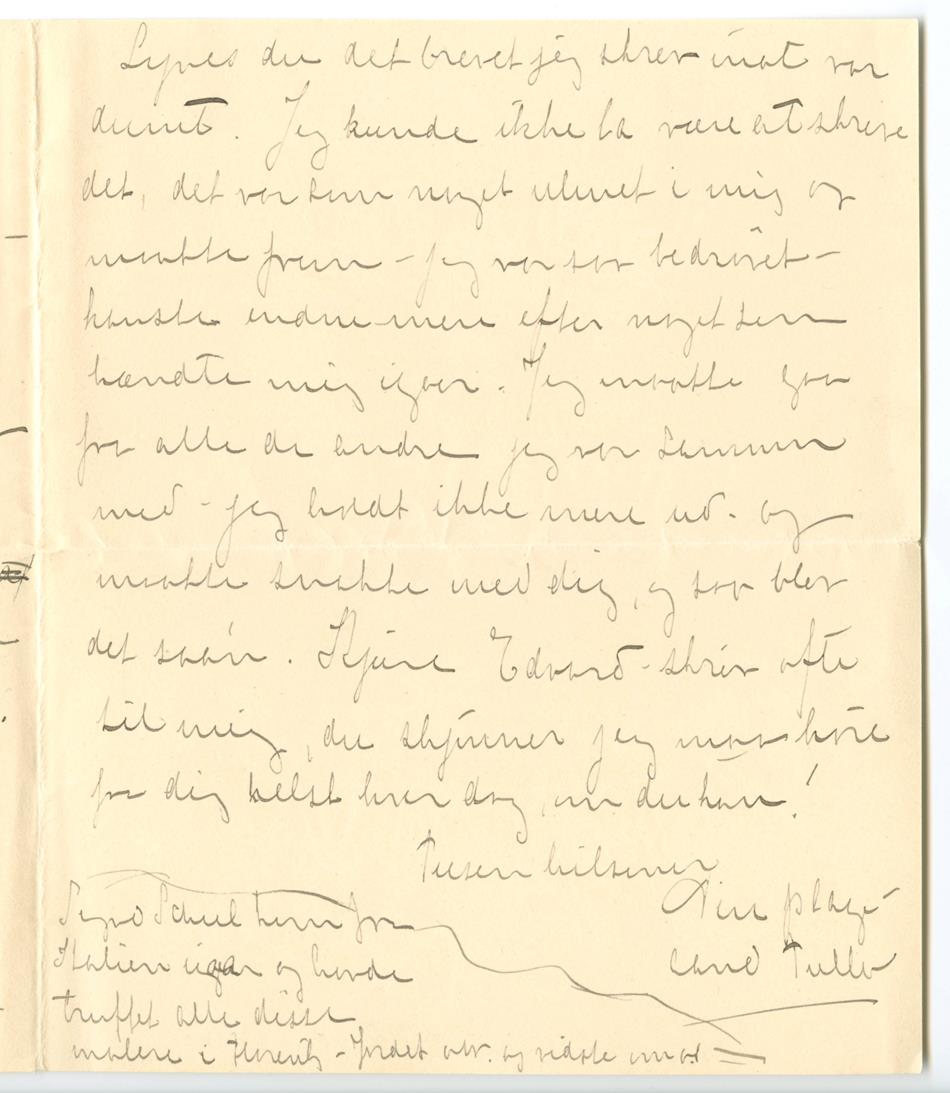 Synes du det brevet jeg skrev inat var
dumt. Jeg kunde ikke la være at skrive
det, det var som noget ulmet i mig og
maatte frem – jeg var saa bedrövet –
kanske endnu mere efter noget som
hændte mig igaar. Jeg maatte gaa
fra alle de andre jeg var sammen
med – jeg holdt ikke mere ud. og
maatte snakke med dig, og saa blev
det saan. Kjære Edvard – skriv ofte
til mig, du skjönner jeg maa höre
fra dig helst hver dag, om du kan!
Tusen hilsener
Din plage-
aand Tulla
Sigurd kom fra
Italien igaar og havde
truffet alle disse
malere i Florentz – Jordet og vidste